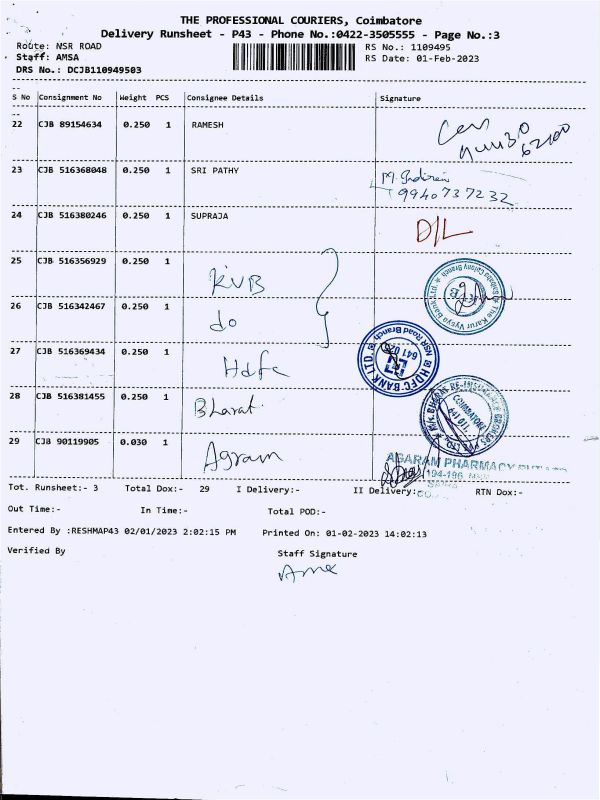 THE PROFESSIONAL COURIERS, Coimbatore
Delivery Runsheet - P43 - Phone No.:0422-3505555 - Page No.:3
Route: NSR ROAD RS No.: 1109495
Staff: AMSA RS Date: 01-Feb-2023
DRS No.: DCJB110949503
S No Consignment No Weight PCS Consignee Details Signature
22 CJB 89154634 0.250 1 RAMESH
23 CJB 516368048 0.250 1 SRI PATHY
9940737232
24 CJB 516380246 0.250 1 SUPRAJA D/L
25 CJB 516356929 0.250 1 KVB
26 CJB 516342467 0.250 1 do
27 CJB 516369434 0.250 1 Hdfc
HDFC BANK LTD. NSR Road Branch
28 CJB 516381455 0.250 1 Bharat
COIMBATORE
641 011.
29 CJB 90119905 0.030 1 Agram
AGARAM PHARMACY
194-196
Tot. Runsheet:- 3 Total Dox:- 29 I Delivery:- II Delivery:- RTN Dox:-
Out Time:- In Time:- Total POD:-
Entered By :RESHMAP43 02/01/2023 2:02:15 PM Printed On: 01-02-2023 14:02:13
Verified By Staff Signature